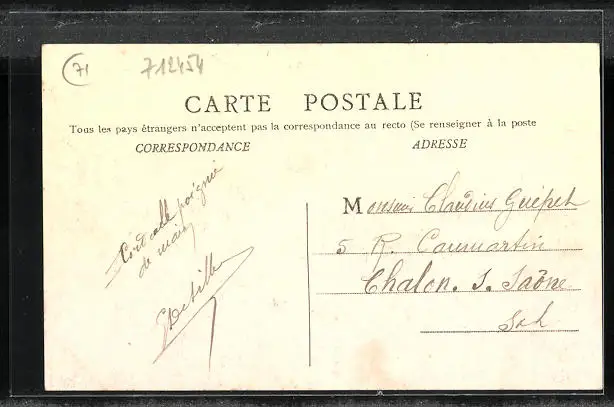 71
712454
CARTE POSTALE
Tous les pays étrangers n'acceptent pas la correspondance au recto (Se renseigner à la poste
CORRESPONDANCE
ADRESSE
Cordiale poignée
de main
Monsieur Claudius Guépet
5 R. Caumartin
Chalon. S. Saône
S&L